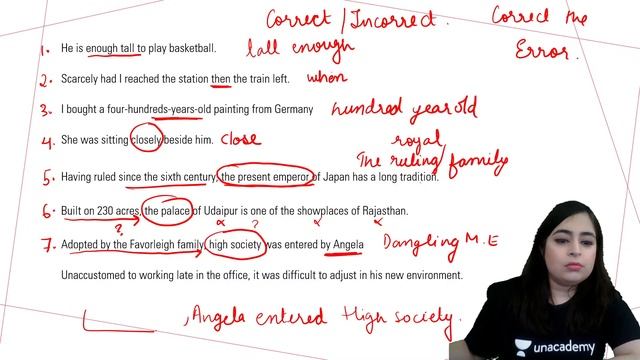 Correct / Incorrect. Correct the
Error.
1. He is enough tall to play basketball. tall enough
2. Scarcely had I reached the station then the train left. when
3. I bought a four-hundreds-years-old painting from Germany hundred year old
4. She was sitting closely beside him. close
royal
The ruling/family
5. Having ruled since the sixth century, the present emperor of Japan has a long tradition.
6. Built on 230 acres, the palace of Udaipur is one of the showplaces of Rajasthan.
?
?
7. Adopted by the Favorleigh family, high society was entered by Angela Dangling M.E
Unaccustomed to working late in the office, it was difficult to adjust in his new environment.
, Angela entered High society.
unacademy